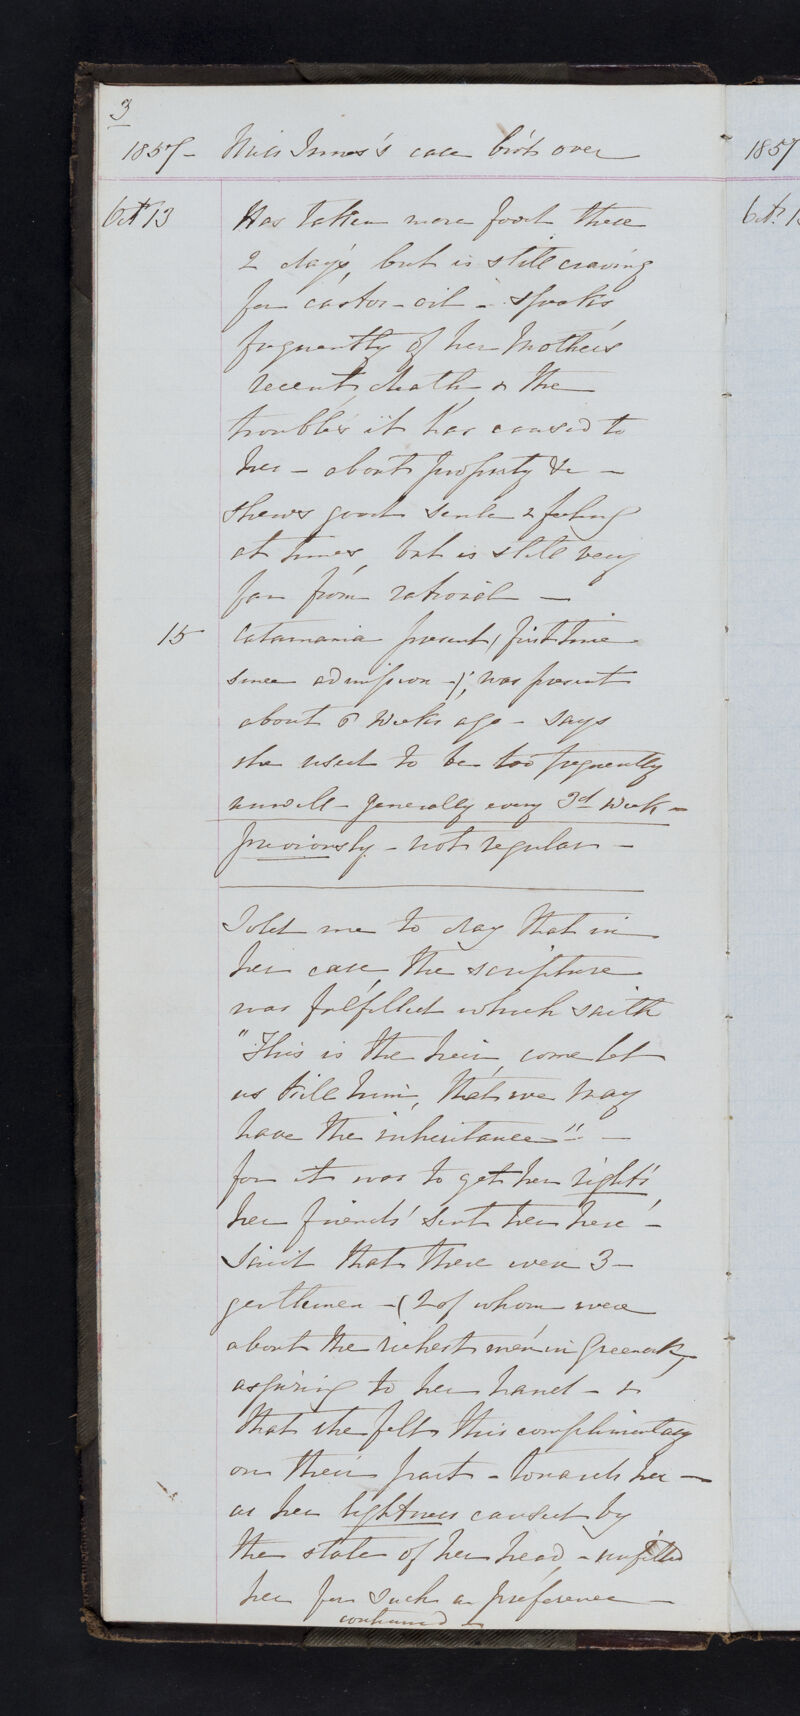 3
1857 - Miss Innes's case bro't over
1857
Octr 13 Has taken more food these
Octr 1
2 days, but is still craving
for castor-oil - speaks
frequently of her Mother's
recent death, & the
troubles it has caused to
her - about property &c -
shews good sense & feeling
at times, but is still very
far from rational -
15 Catamania present, (first time
since admission -); was present
about 6 weeks ago - says
she used to be too frequently
unwell - generally every 3d week -
previously - not regular -
Told me to day that in
her case, the scripture
was fulfilled which saith
"This is the heir, come let
us kill him, that we may
have the inheritance" -
for it was to get her rights
her friends' sent her here -
Said that there were 3 -
gentlemen - (2 of whom were
about the richest men in Greenock,
aspiring to her hand - &
that she felt this complimentary
on their part - towards her -
as her lightness caused by
the state of her head, - unfitted
her for such a preference -
continued -